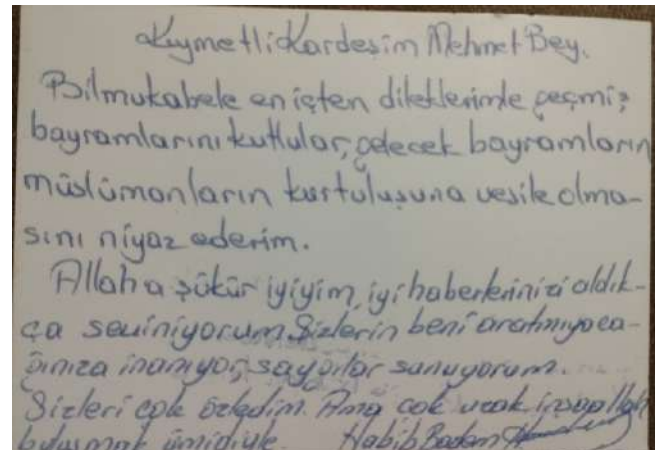 Kıymetli Kardeşim Mehmet Bey.
Bilmukabele en içten dileklerimle geçmiş
bayramlarını kutlular, gelecek bayramların
müslümanların kurtuluşuna vesile olma-
sını niyaz ederim.
Allaha şükür iyiyim, iyi haberlerinizi aldık-
ça seviniyorum. Sizlerin beni aratmıyaca-
ğınıza inanıyor, saygılar sunuyorum.
Sizleri çok özledim. Ama çok uzak inşaallah
buluşmak ümidiyle. Habib Badem